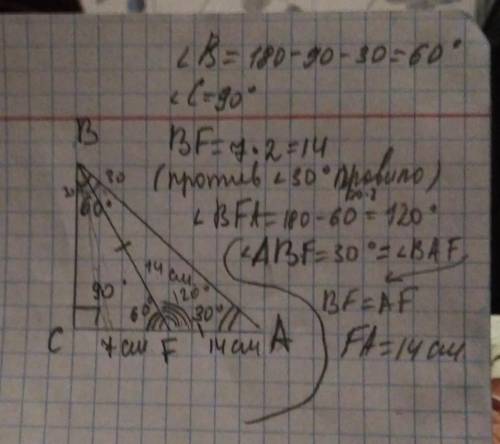 ∠B = 180-90-30=60°
∠C=90°
BF=7·2=14
(против ∠30° правило)
∠BFA=180-60=120°
∠ABF=30°=∠BAF
BF=AF
FA=14см
B
30
60°
14 см
90°
60°
120°
30°
C
7 см
F
14 см
A